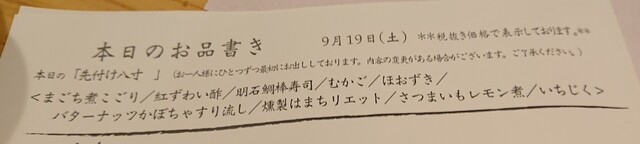 本日のお品書き 9月19日(土) ※※税抜き価格で表示しております。※※
本日の「先付け八寸 」(お一人様にひとつずつ最初にお出ししております。内容の変更がある場合がございます。ご了承ください。)
<まごち煮こごり/紅ずわい酢/明石鯛棒寿司/むかご/ほおずき/
バターナッツかぼちゃすり流し/燻製はまちリエット/さつまいもレモン煮/いちじく>